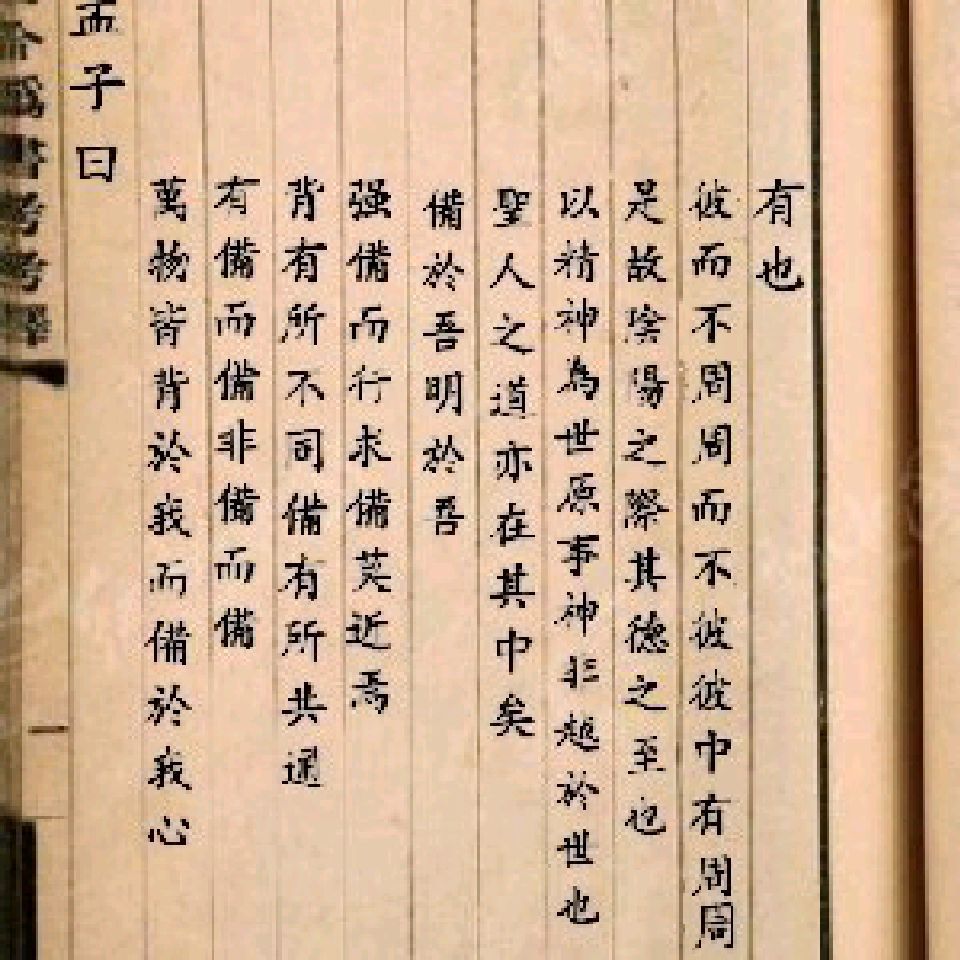 有也
彼而不周周而不彼彼中有周周
是故陰陽之際其德之至也
以精神為世原事神非越於世也
聖人之道亦在其中矣
備於吾明於吾
强備而行求備莫近焉
背有所不同備有所共通
有備而備非備而備
萬物皆背於我而備於我心
孟子曰